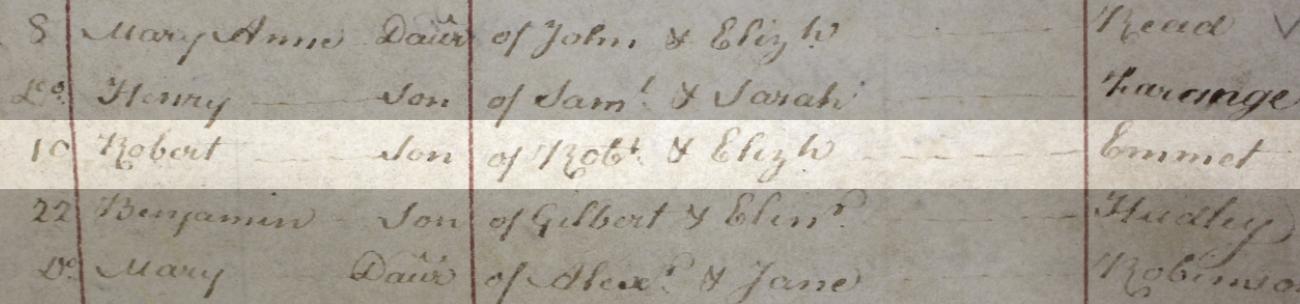 8 Mary Anne Daur of John & Elizh Read
Do. Henry Son of Saml & Sarah
10 Robert Son of Robt & Elizh Emmet
22 Benjamin Son of Gilbert & Elinr Hudley
Do Mary Daur of Alexr & Jane Robinso